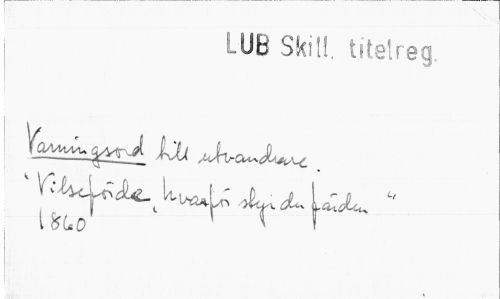 LUB Skill. titelreg.
Varningsord till utvandrare.
"Vilseförde, hvarför styr du färden"
1860